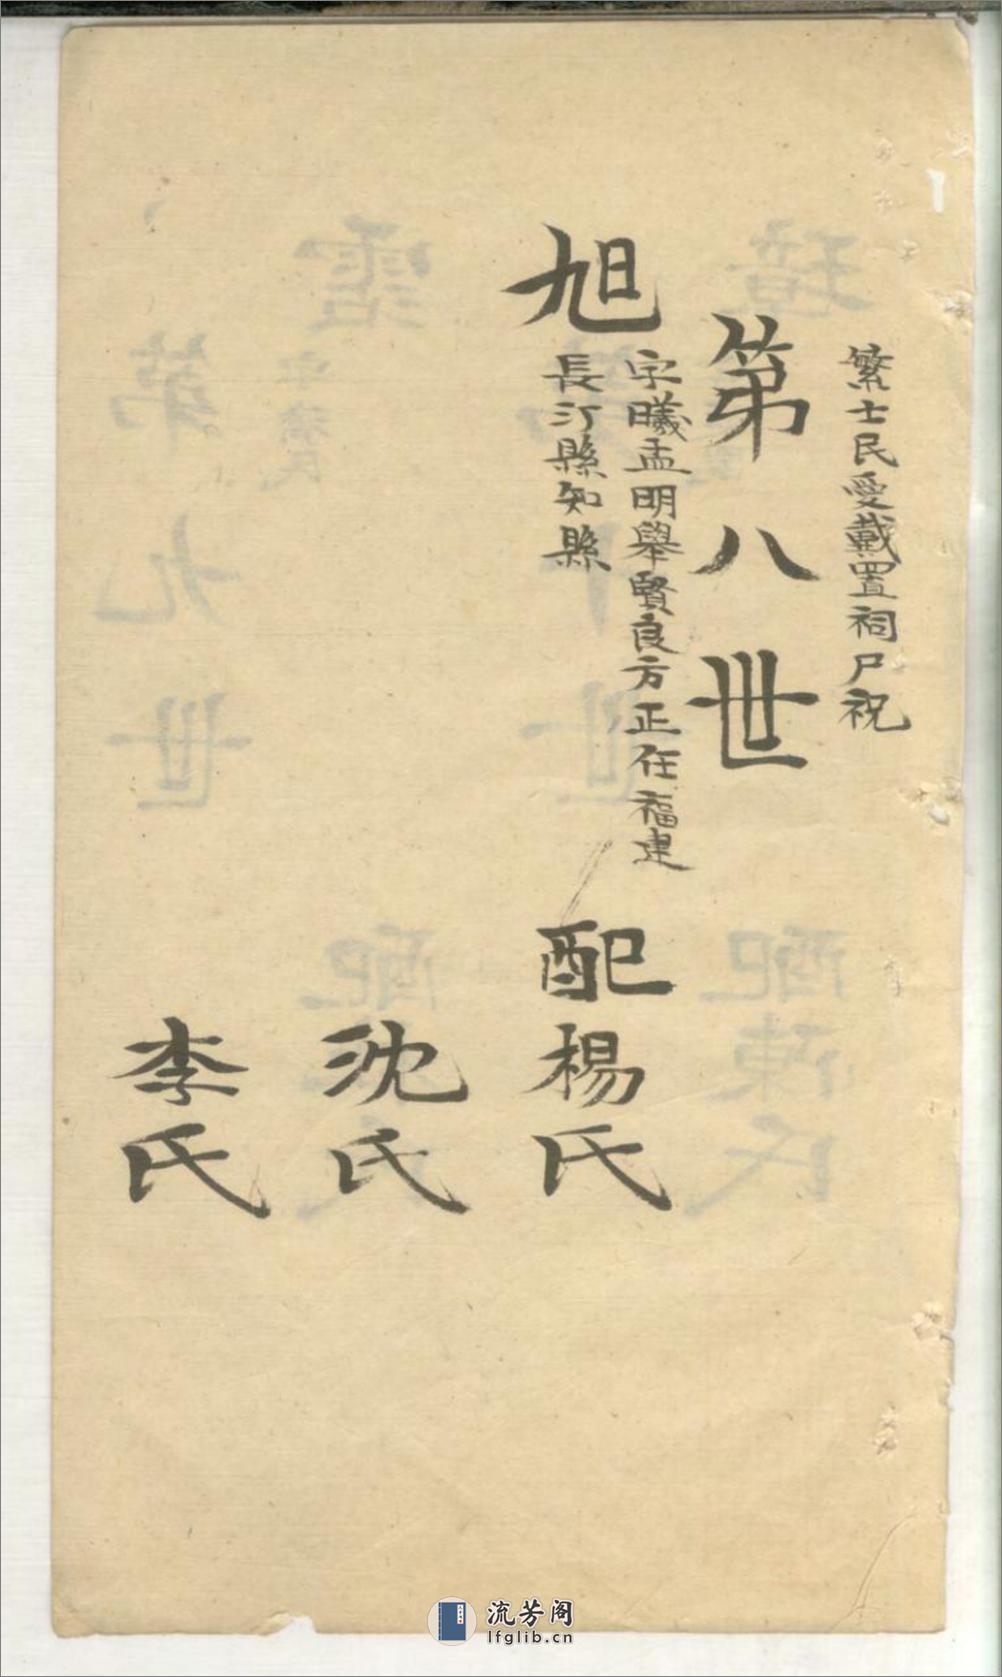 繁士民愛戴置祠尸祝
第八世
旭
字曦孟明舉賢良方正任福建
長汀縣知縣
配楊氏
沈氏
李氏
流芳阁
lfglib.cn